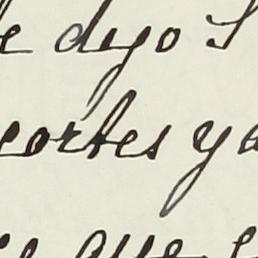 e dejo S
cortes y a
que